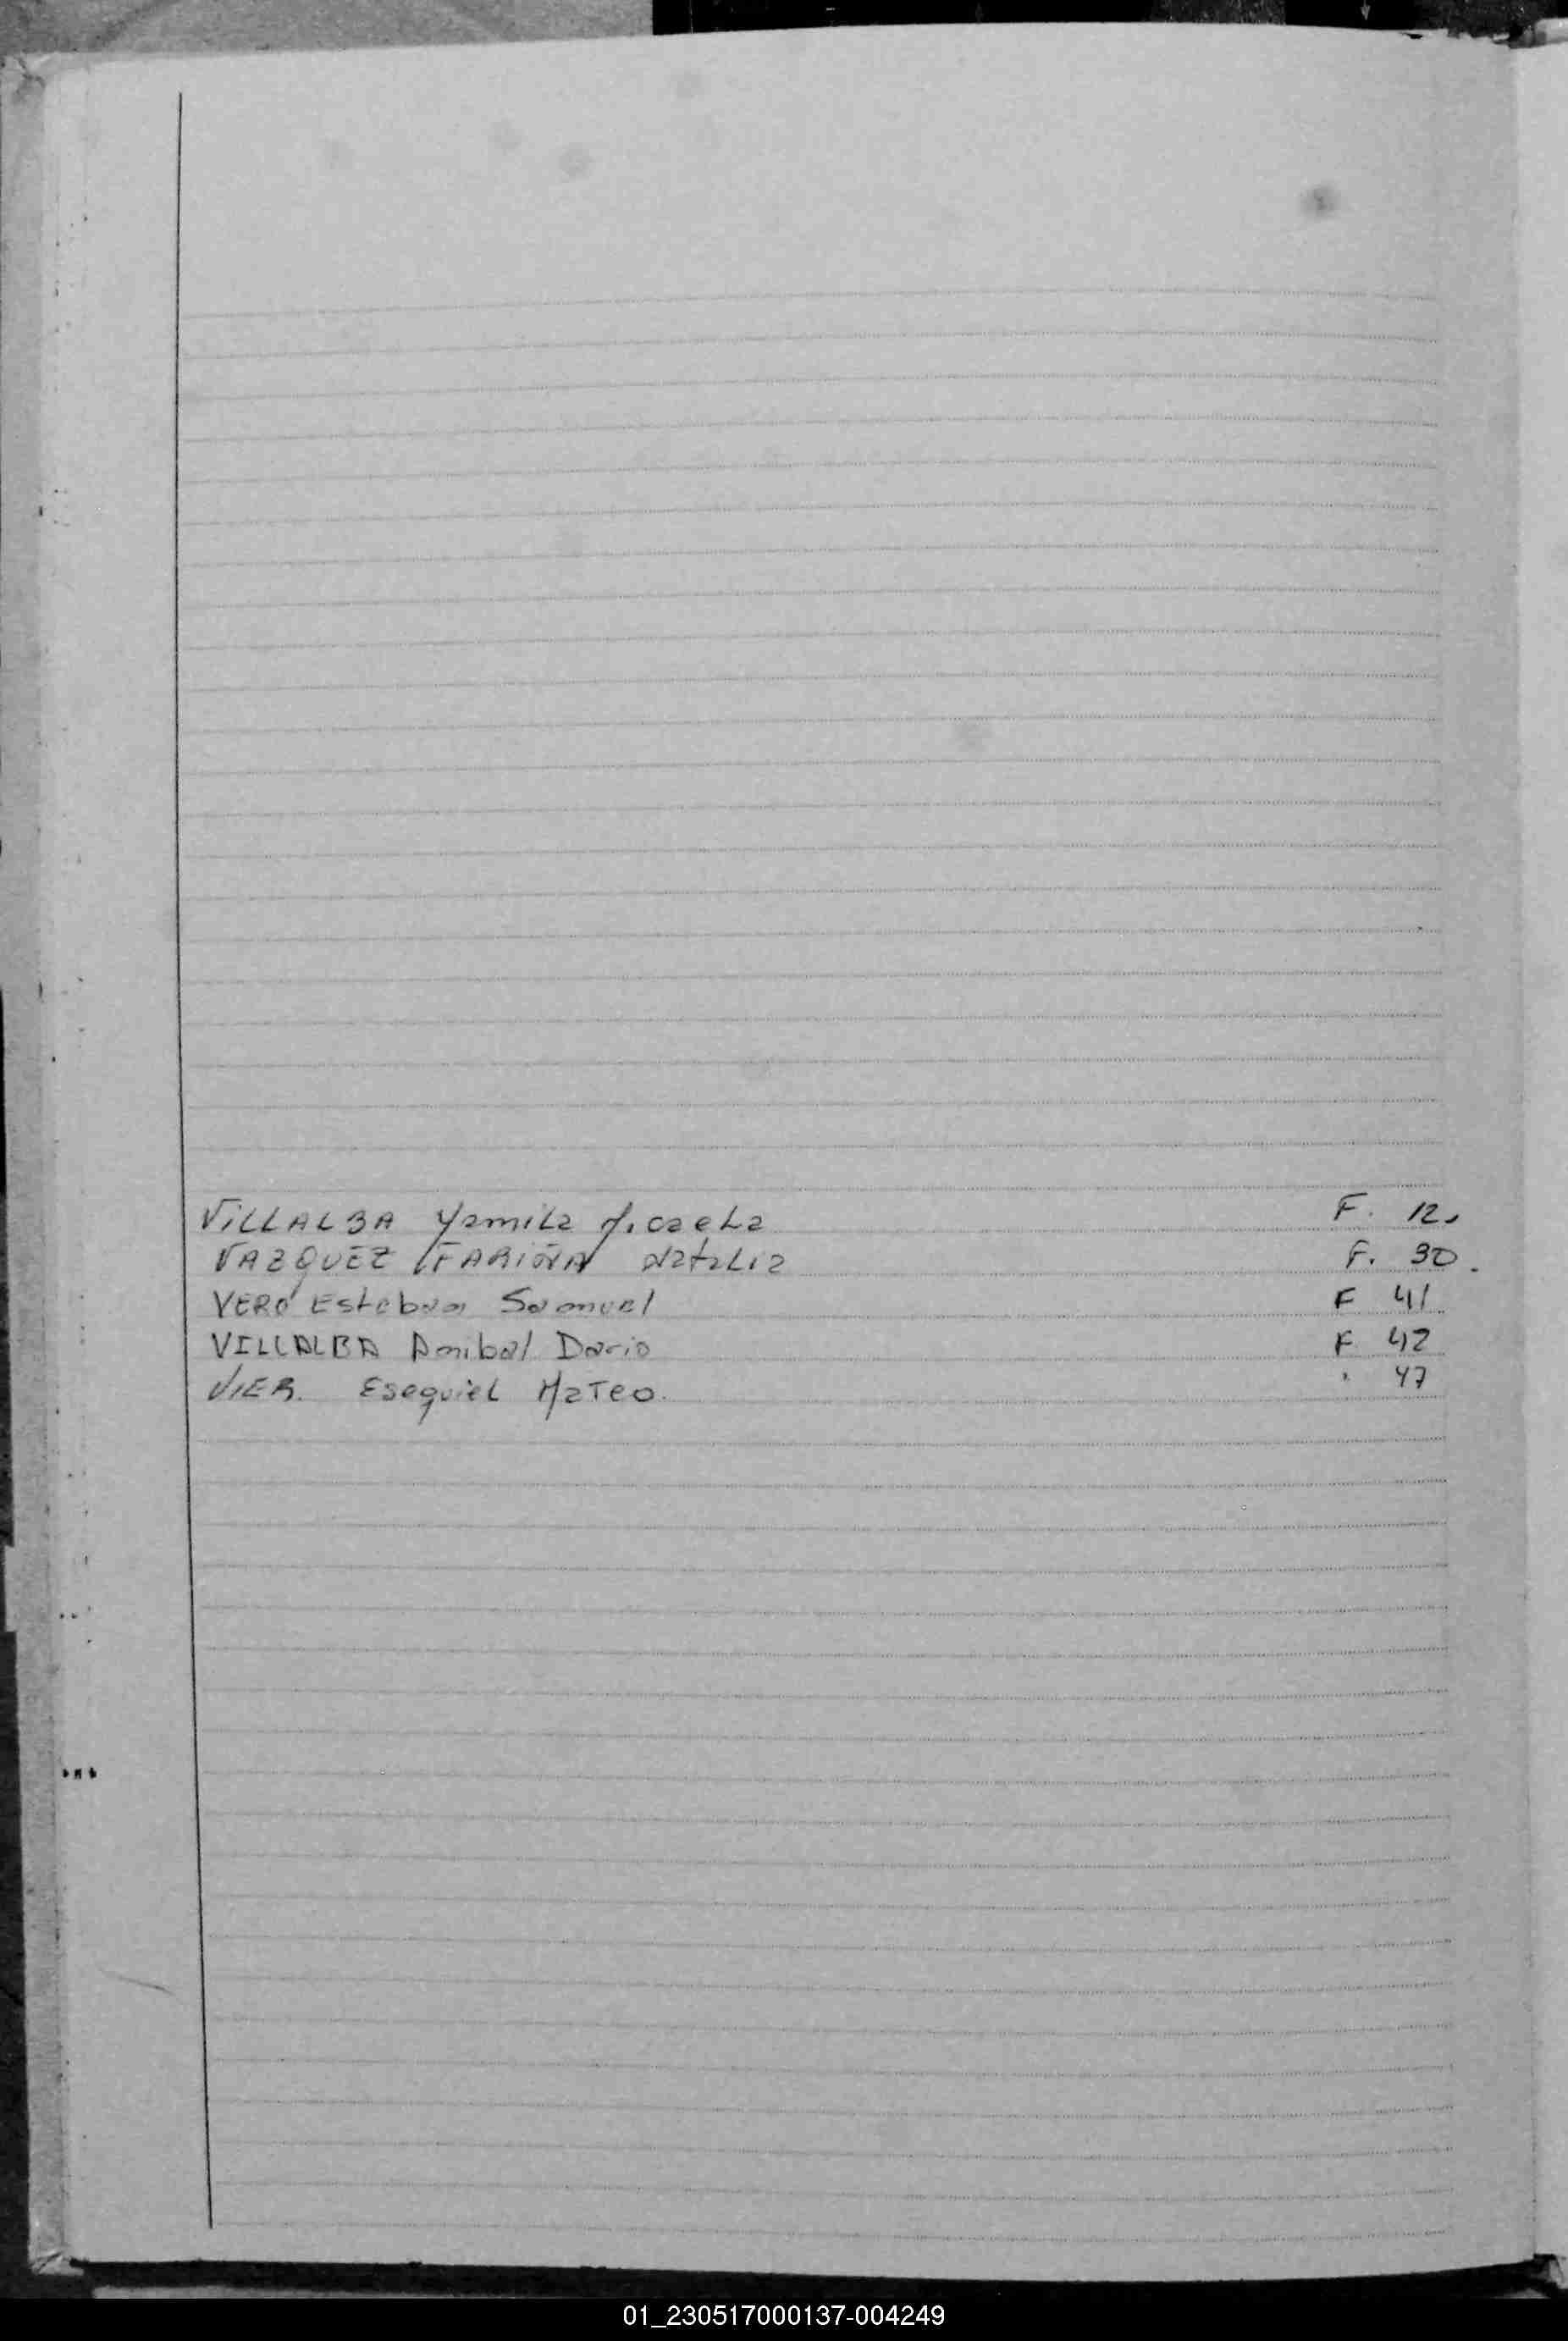 VILLALBA Yamila Micaela F. 12.
VAZQUEZ FARIÑA Natalia F. 30.
VERÓ Esteban Samuel F 41
VILLALBA Anibal Dario F 42
VIER. Esequiel Mateo. " 47
01_230517000137-004249